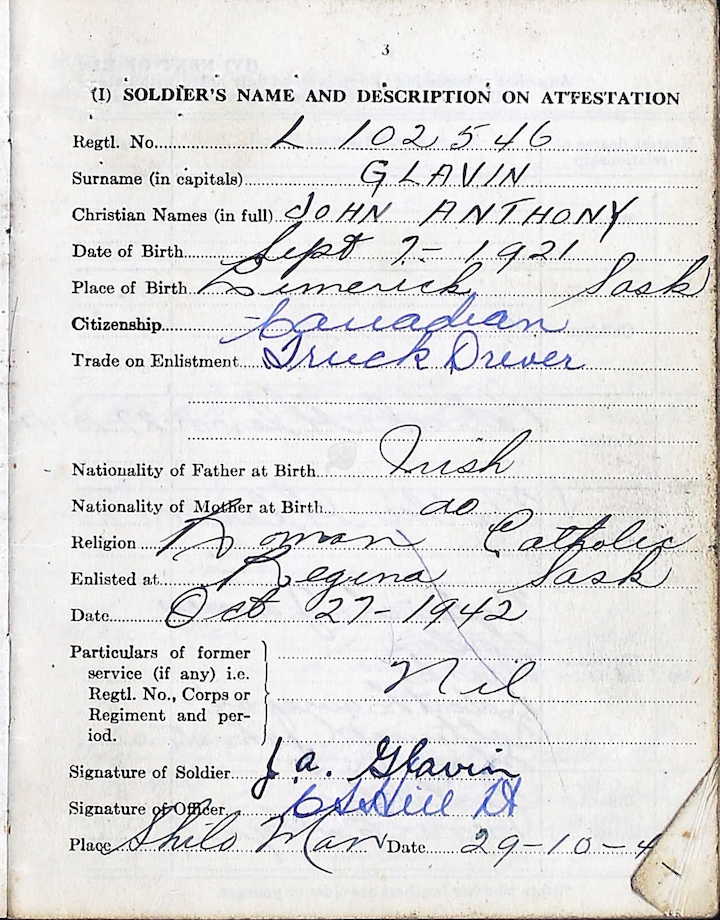 3
(I) SOLDIER'S NAME AND DESCRIPTION ON ATTESTATION
Regtl. No. L 102546
Surname (in capitals) GLAVIN
Christian Names (in full) JOHN ANTHONY
Date of Birth Sept 7 - 1921
Place of Birth Limerick Sask
Citizenship Canadian
Trade on Enlistment Truck Driver
Nationality of Father at Birth Irish
Nationality of Mother at Birth do
Religion Roman Catholic
Enlisted at Regina Sask
Date Oct 27-1942
Particulars of former
service (if any) i.e.
Regtl. No., Corps or
Regiment and per-
iod.
Nil
Signature of Soldier J. A. Glavin
Signature of Officer Hill Lt
Place Shilo Man Date 29-10-4